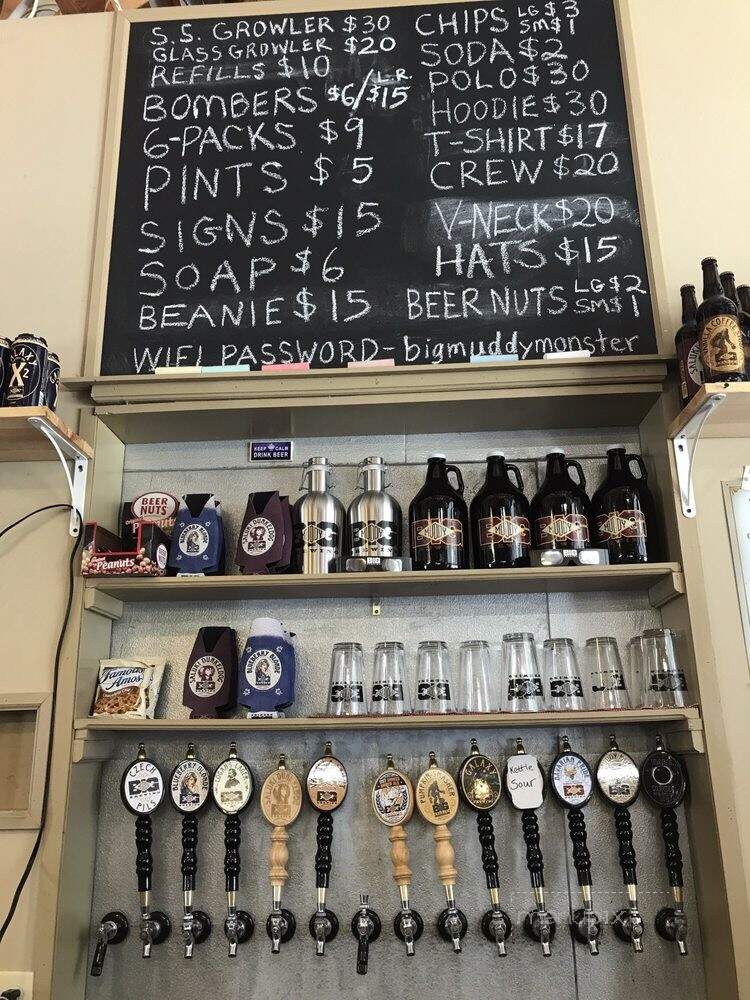 S.S. GROWLER $30
GLASS GROWLER $20
REFILLS $10
BOMBERS $6/$15 L.R.
6-PACKS $9
PINTS $5
SIGNS $15
SOAP $6
BEANIE $15
CHIPS LG $3 SM $1
SODA $2
POLO $30
HOODIE $30
T-SHIRT $17
CREW $20
V-NECK $20
HATS $15
BEER NUTS LG $2 SM $1
WIFI PASSWORD - bigmuddymonster
KEEP CALM
DRINK BEER
BEER
NUTS
Peanuts
Famous
Amos
CZECH
PILS
BLUEBERRY BLONDE
GALAXY
Kettle
Sour